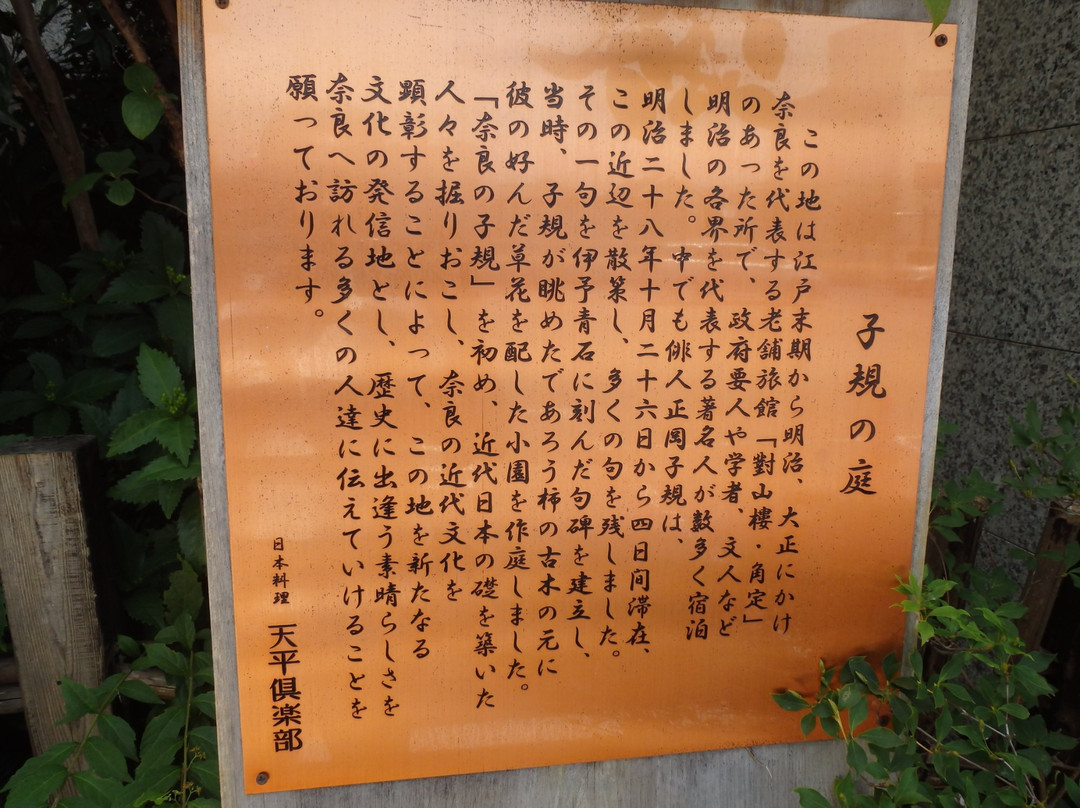 子規の庭
この地は江戸末期から明治、大正にかけ
奈良を代表する老舗旅館「對山樓・角定」
のあった所で、政府要人や学者、文人など
明治の各界を代表する著名人が数多く宿泊
しました。中でも俳人正岡子規は、
明治二十八年十月二十六日から四日间滞在、
この近辺を散策し、多くの句を残しました。
その一句を伊予青石に刻んだ句碑を建立し、
当時、子規が眺めたであろう柿の古木の元に
彼の好んだ草花を配した小園を作庭しました。
「奈良の子規」を初め、近代日本の礎を築いた
人々を掘りおこし、奈良の近代文化を
顕彰することによって、この地を新たなる
文化の発信地とし、歴史に出逢う素晴らしさを
奈良へ訪れる多くの人達に伝えていけることを
願っております。
日本料理 天平倶楽部